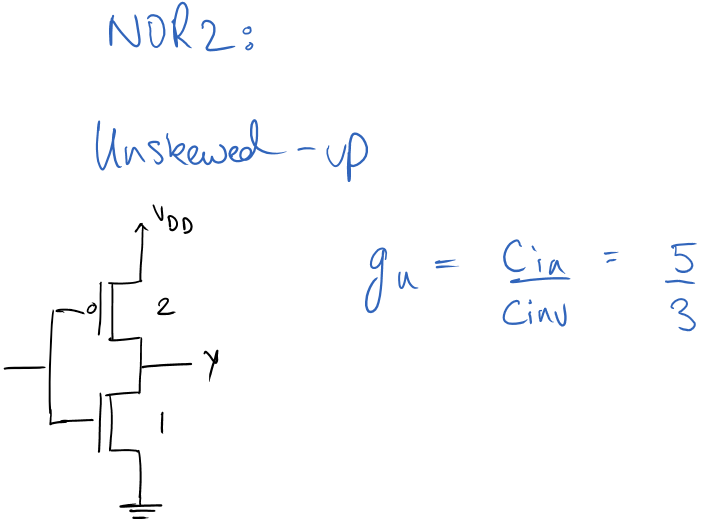 NOR2:
Unskewed - up
VDD
2
Y
1
gu = Cin / Cinv = 5 / 3